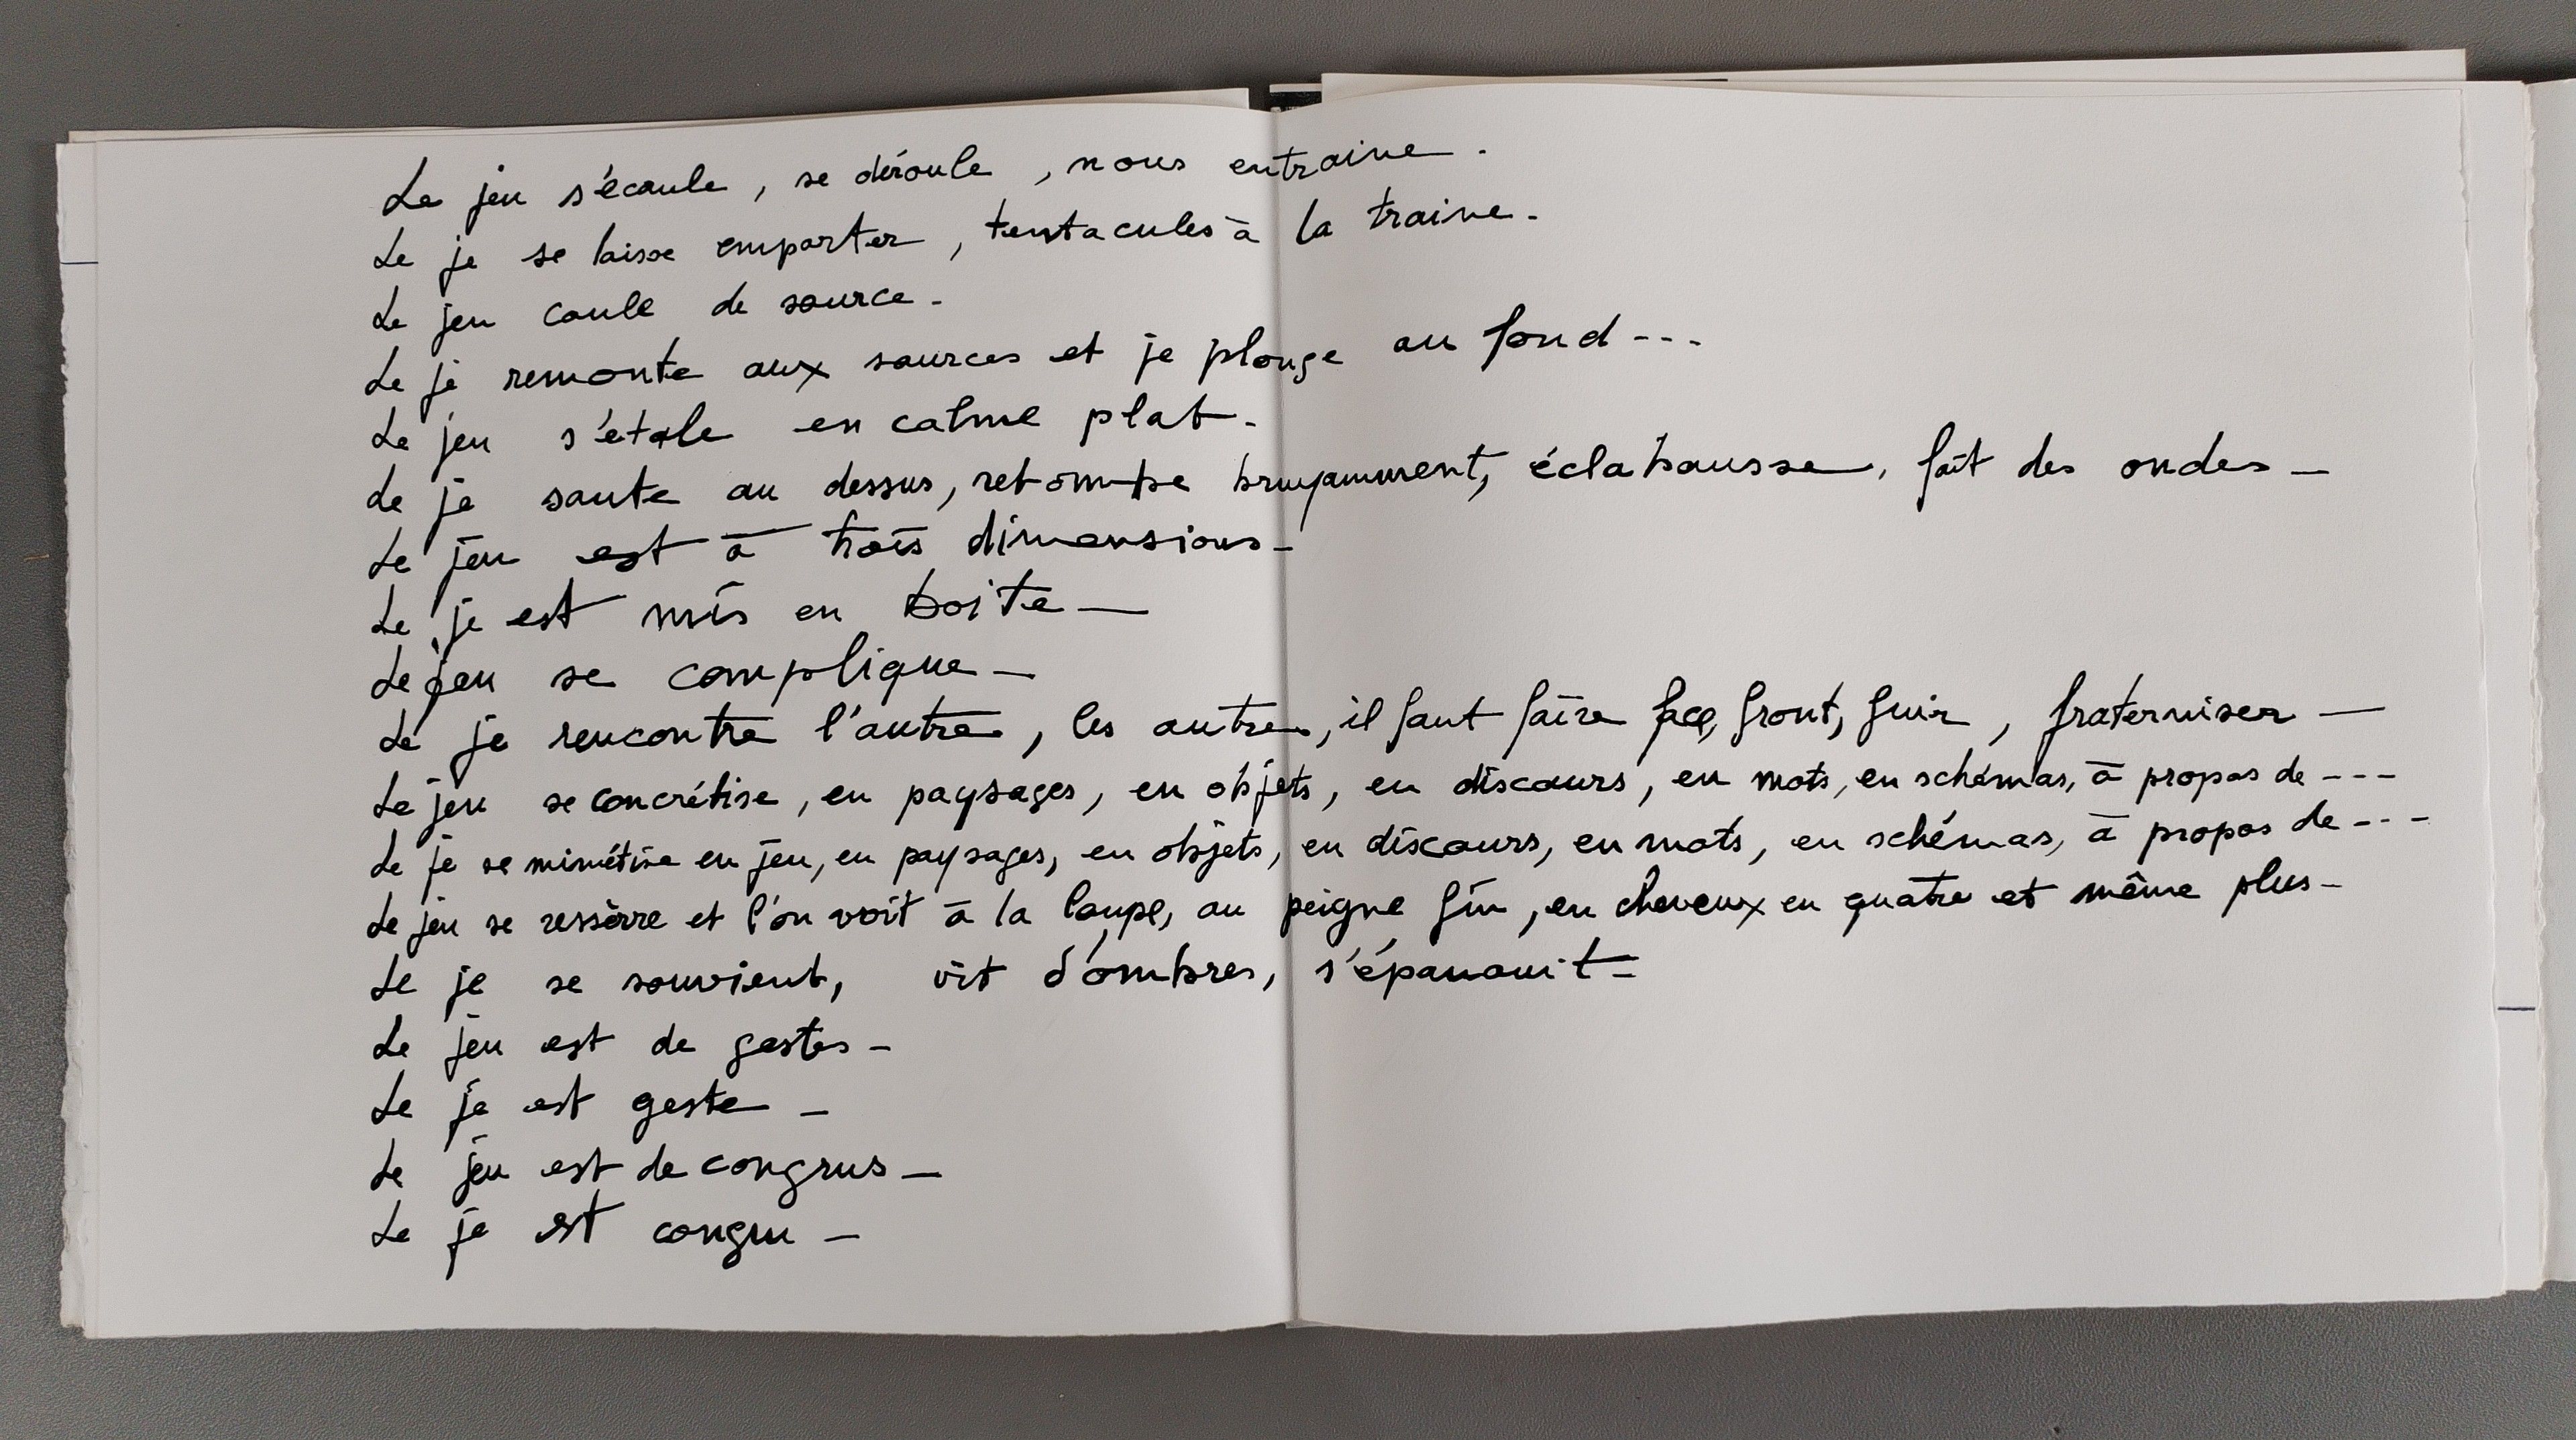 Le jeu s'écoule, se déroule, nous entraine.
Le je se laisse emporter, tentacules à la traine.
Le jeu coule de source.
Le je remonte aux sources et je plonge au fond ---
Le jeu s'étale en calme plat.
Le je saute au dessus, retombe bruyamment, éclabousse, fait des ondes _
Le jeu est à trois dimensions _
Le je est mis en boite _
Le jeu se complique _
Le je rencontre l'autre, les autres, il faut faire face, front, fuir, fraterniser _
Le jeu se concrétise, en paysages, en objets, en discours, en mots, en schémas, à propos de ---
Le je se mimétise en jeu, en paysages, en objets, en discours, en mots, en schémas, à propos de ---
Le jeu se ressèrre et l'on voit à la loupe, au peigne fin, en cheveux en quatre et même plus _
Le je se souvient, vit d'ombres, s'épanouit _
Le jeu est de gestes _
Le je est geste _
Le jeu est de congrus _
Le je est congru _